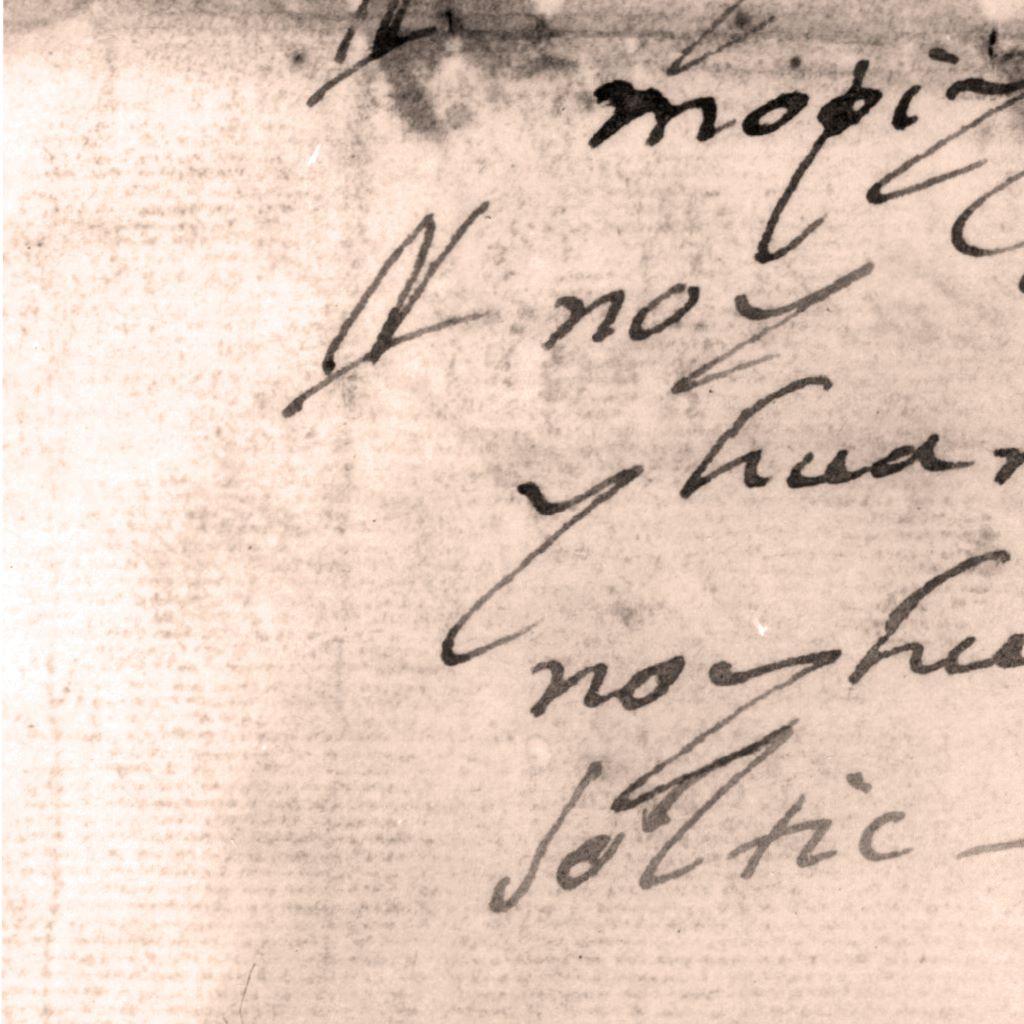 mopi
noy
yhuan
noyhu
soltic